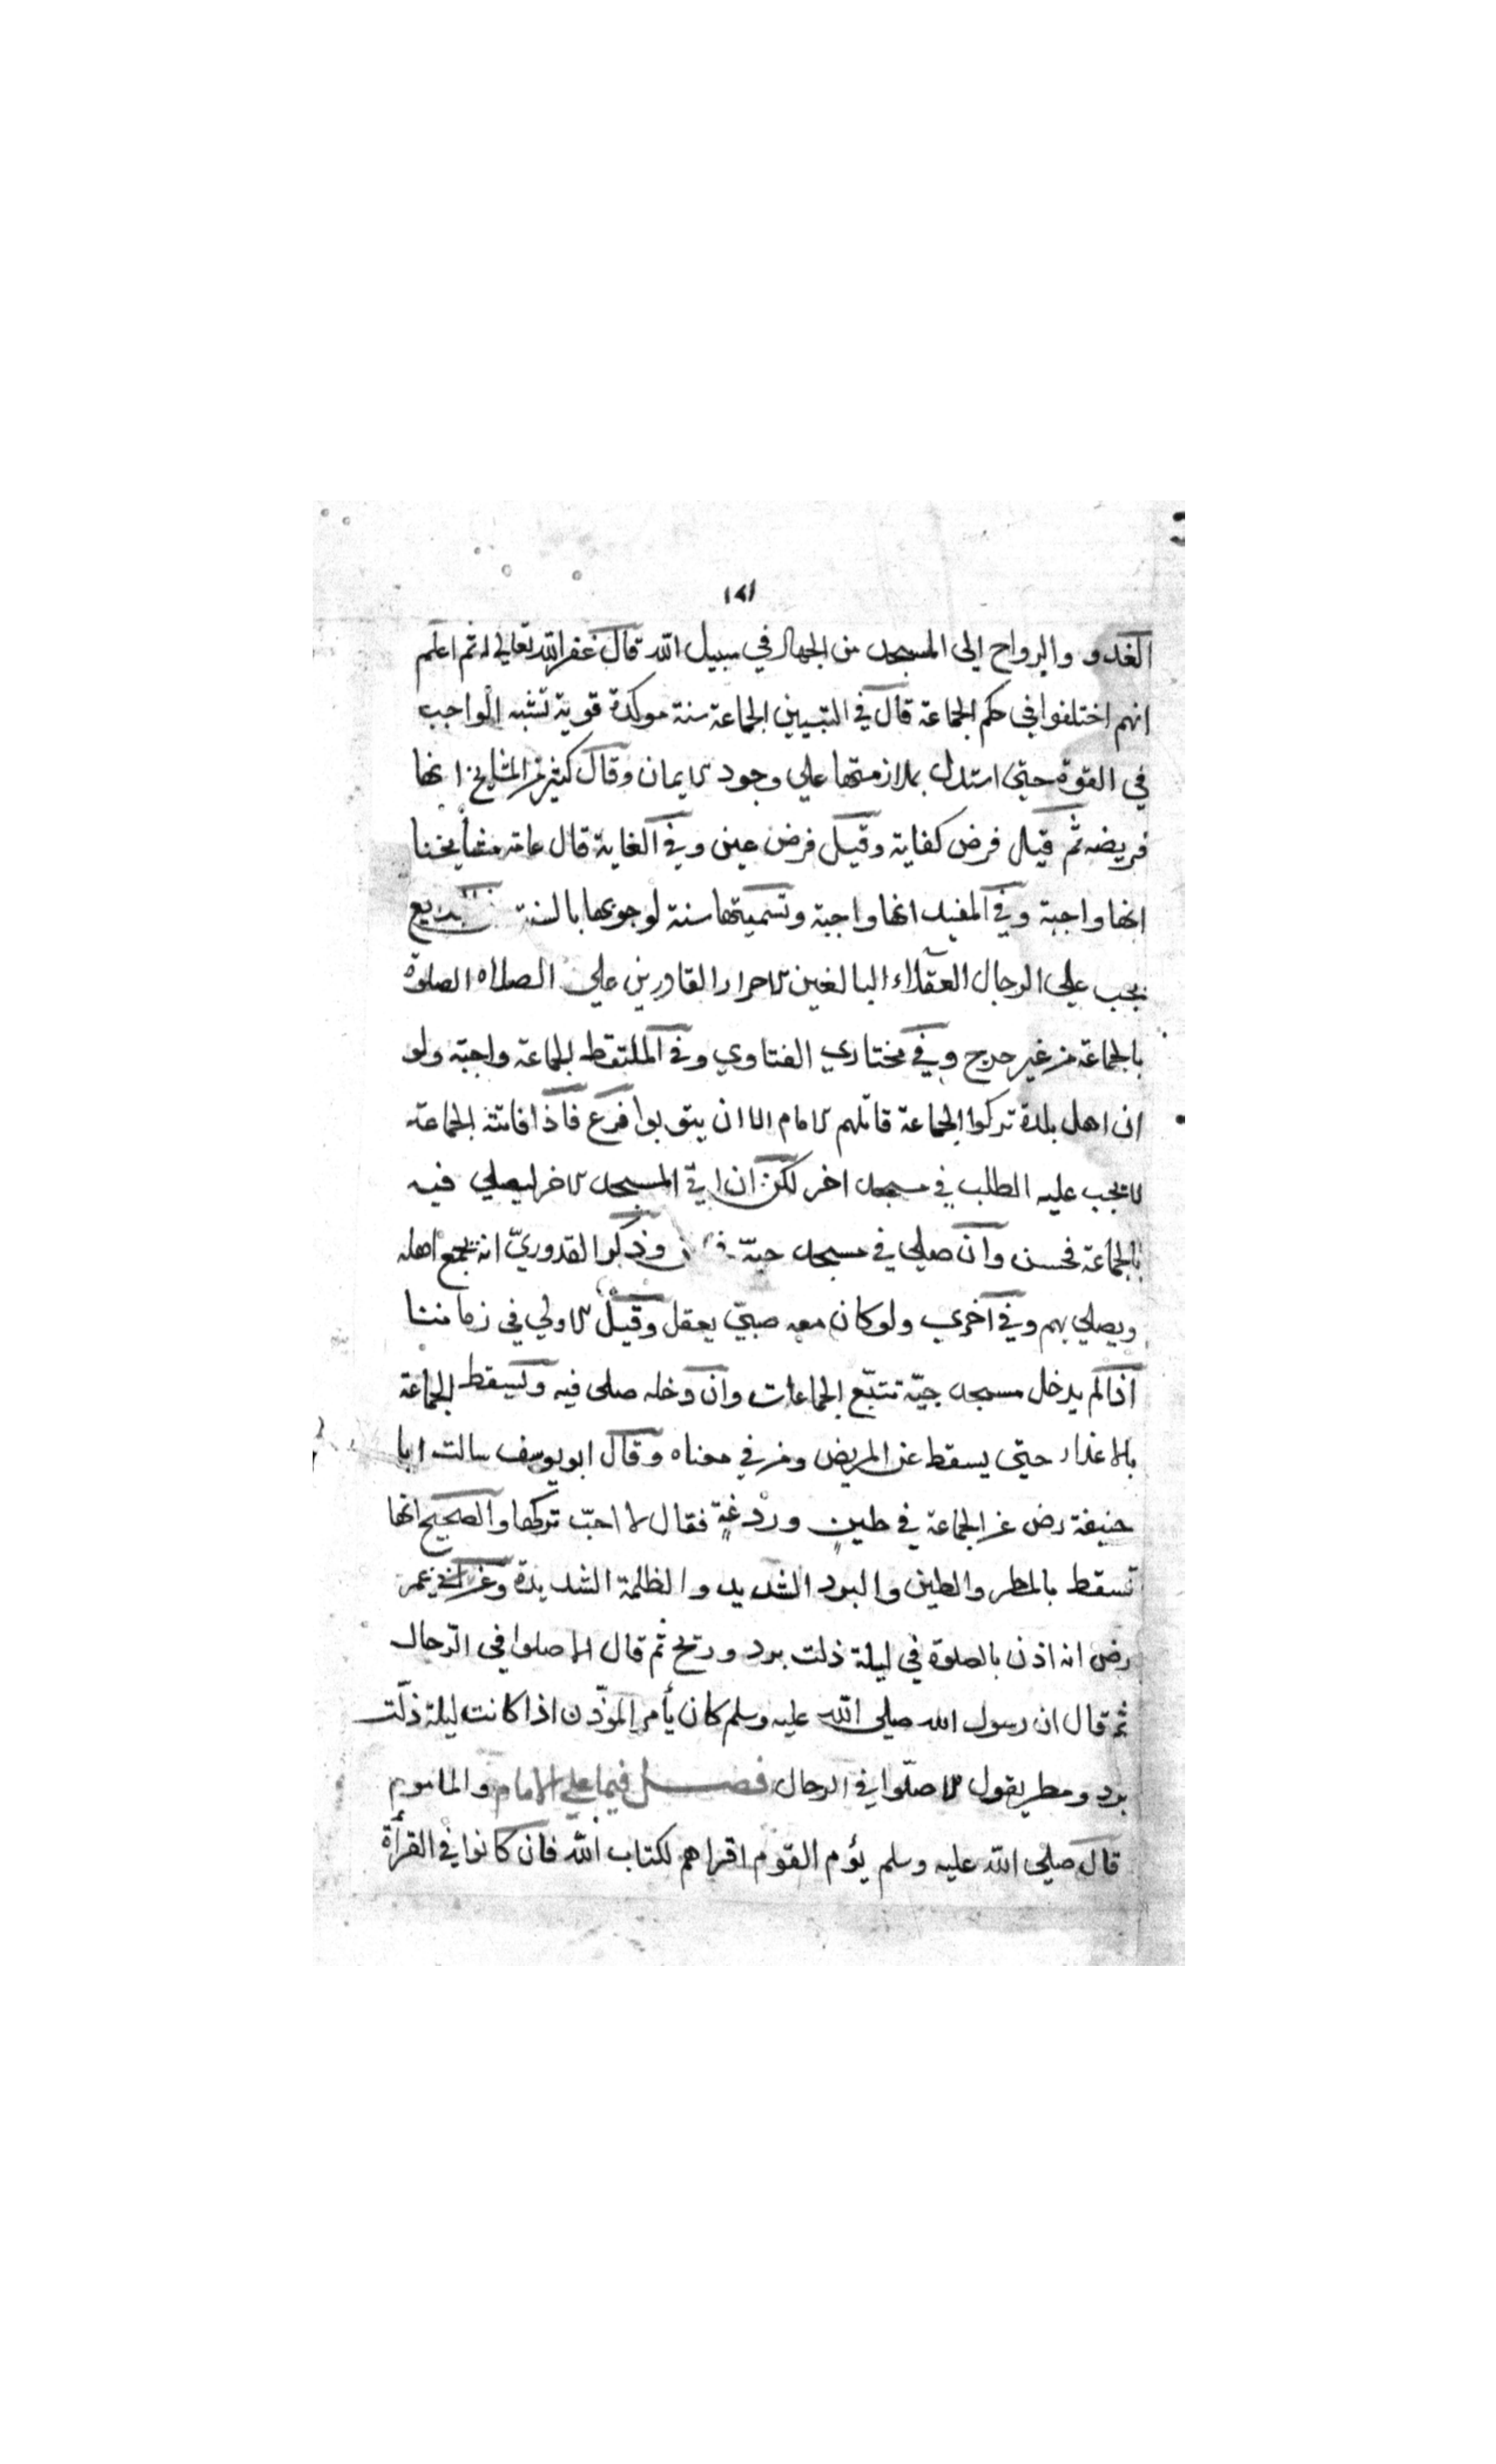 ١٤١
الغدو والرواح الى المسجد من الجهاد في سبيل الله قال غفر الله تعالي له ثم اعلم
انهم اختلفوا في حكم الجماعة قال في التبيين الجماعة سنة موكدة قوية تشبه الواجب
في القوة حتى استدل بملازمتها علي وجود الايمان وقال كثير من المشايخ انها
فريضه ثم قيل فرض كفاية وقيل فرض عين وفي الغاية قال عامة مشأيخنا
انها واجبة وفي المفيد انها واجبة وتسميتها سنة لوجوبها بالسنة بديع
يجب على الرجال العقلاء البالغين الاحرار القادرين علي الصلاه الصلوة
بالجماعة من غير حرج وفي مختاري الفتاوي وفي الملتقط الجماعة واجبة ولو
ان اهل بلدة تركوا الجماعة قاتلهم الامام الا ان يتوبوا فرع فاذا فاتته الجماعة
لا يجب عليه الطلب في مسجد اخر لكن ان اتي المسجد الاخر ليصلي فيه
بالجماعة فحسن وان صلي في مسجد حيّه وذكر القدوريّ انه يجمع اهله
ويصلي بهم وفي اخري ولو كان معه صبيّ يعقل وقيل الاولي في زماننا
اذا لم يدخل مسجد حيّه تتبّع الجماعات وان دخله صلى فيه وتسقط الجماعة
بالاعذار حتي يسقط عن المريض ومن في معناه وقال ابو يوسف سالت ابا
حنيفة رض عن الجماعة في طينٍ وردغةٍ فقال لا احبّ تركها والصحيح انها
تسقط بالمطر والطين والبرد الشديد والظلمة الشديدة وعن ابن عمر
رض انه اذن بالصلوة في ليلة ذات برد وريح ثم قال الا صلوا في الرّحال
ثم قال ان رسول الله صلى الله عليه وسلم كان يأمر الموذّن اذا كانت ليلة ذات
برد ومطر يقول الا صلّوا في الرحال فصل فيما علي الامام والماموم
قال صلى الله عليه وسلم يؤم القوم اقراهم لكتاب الله فان كانوا في القرأة